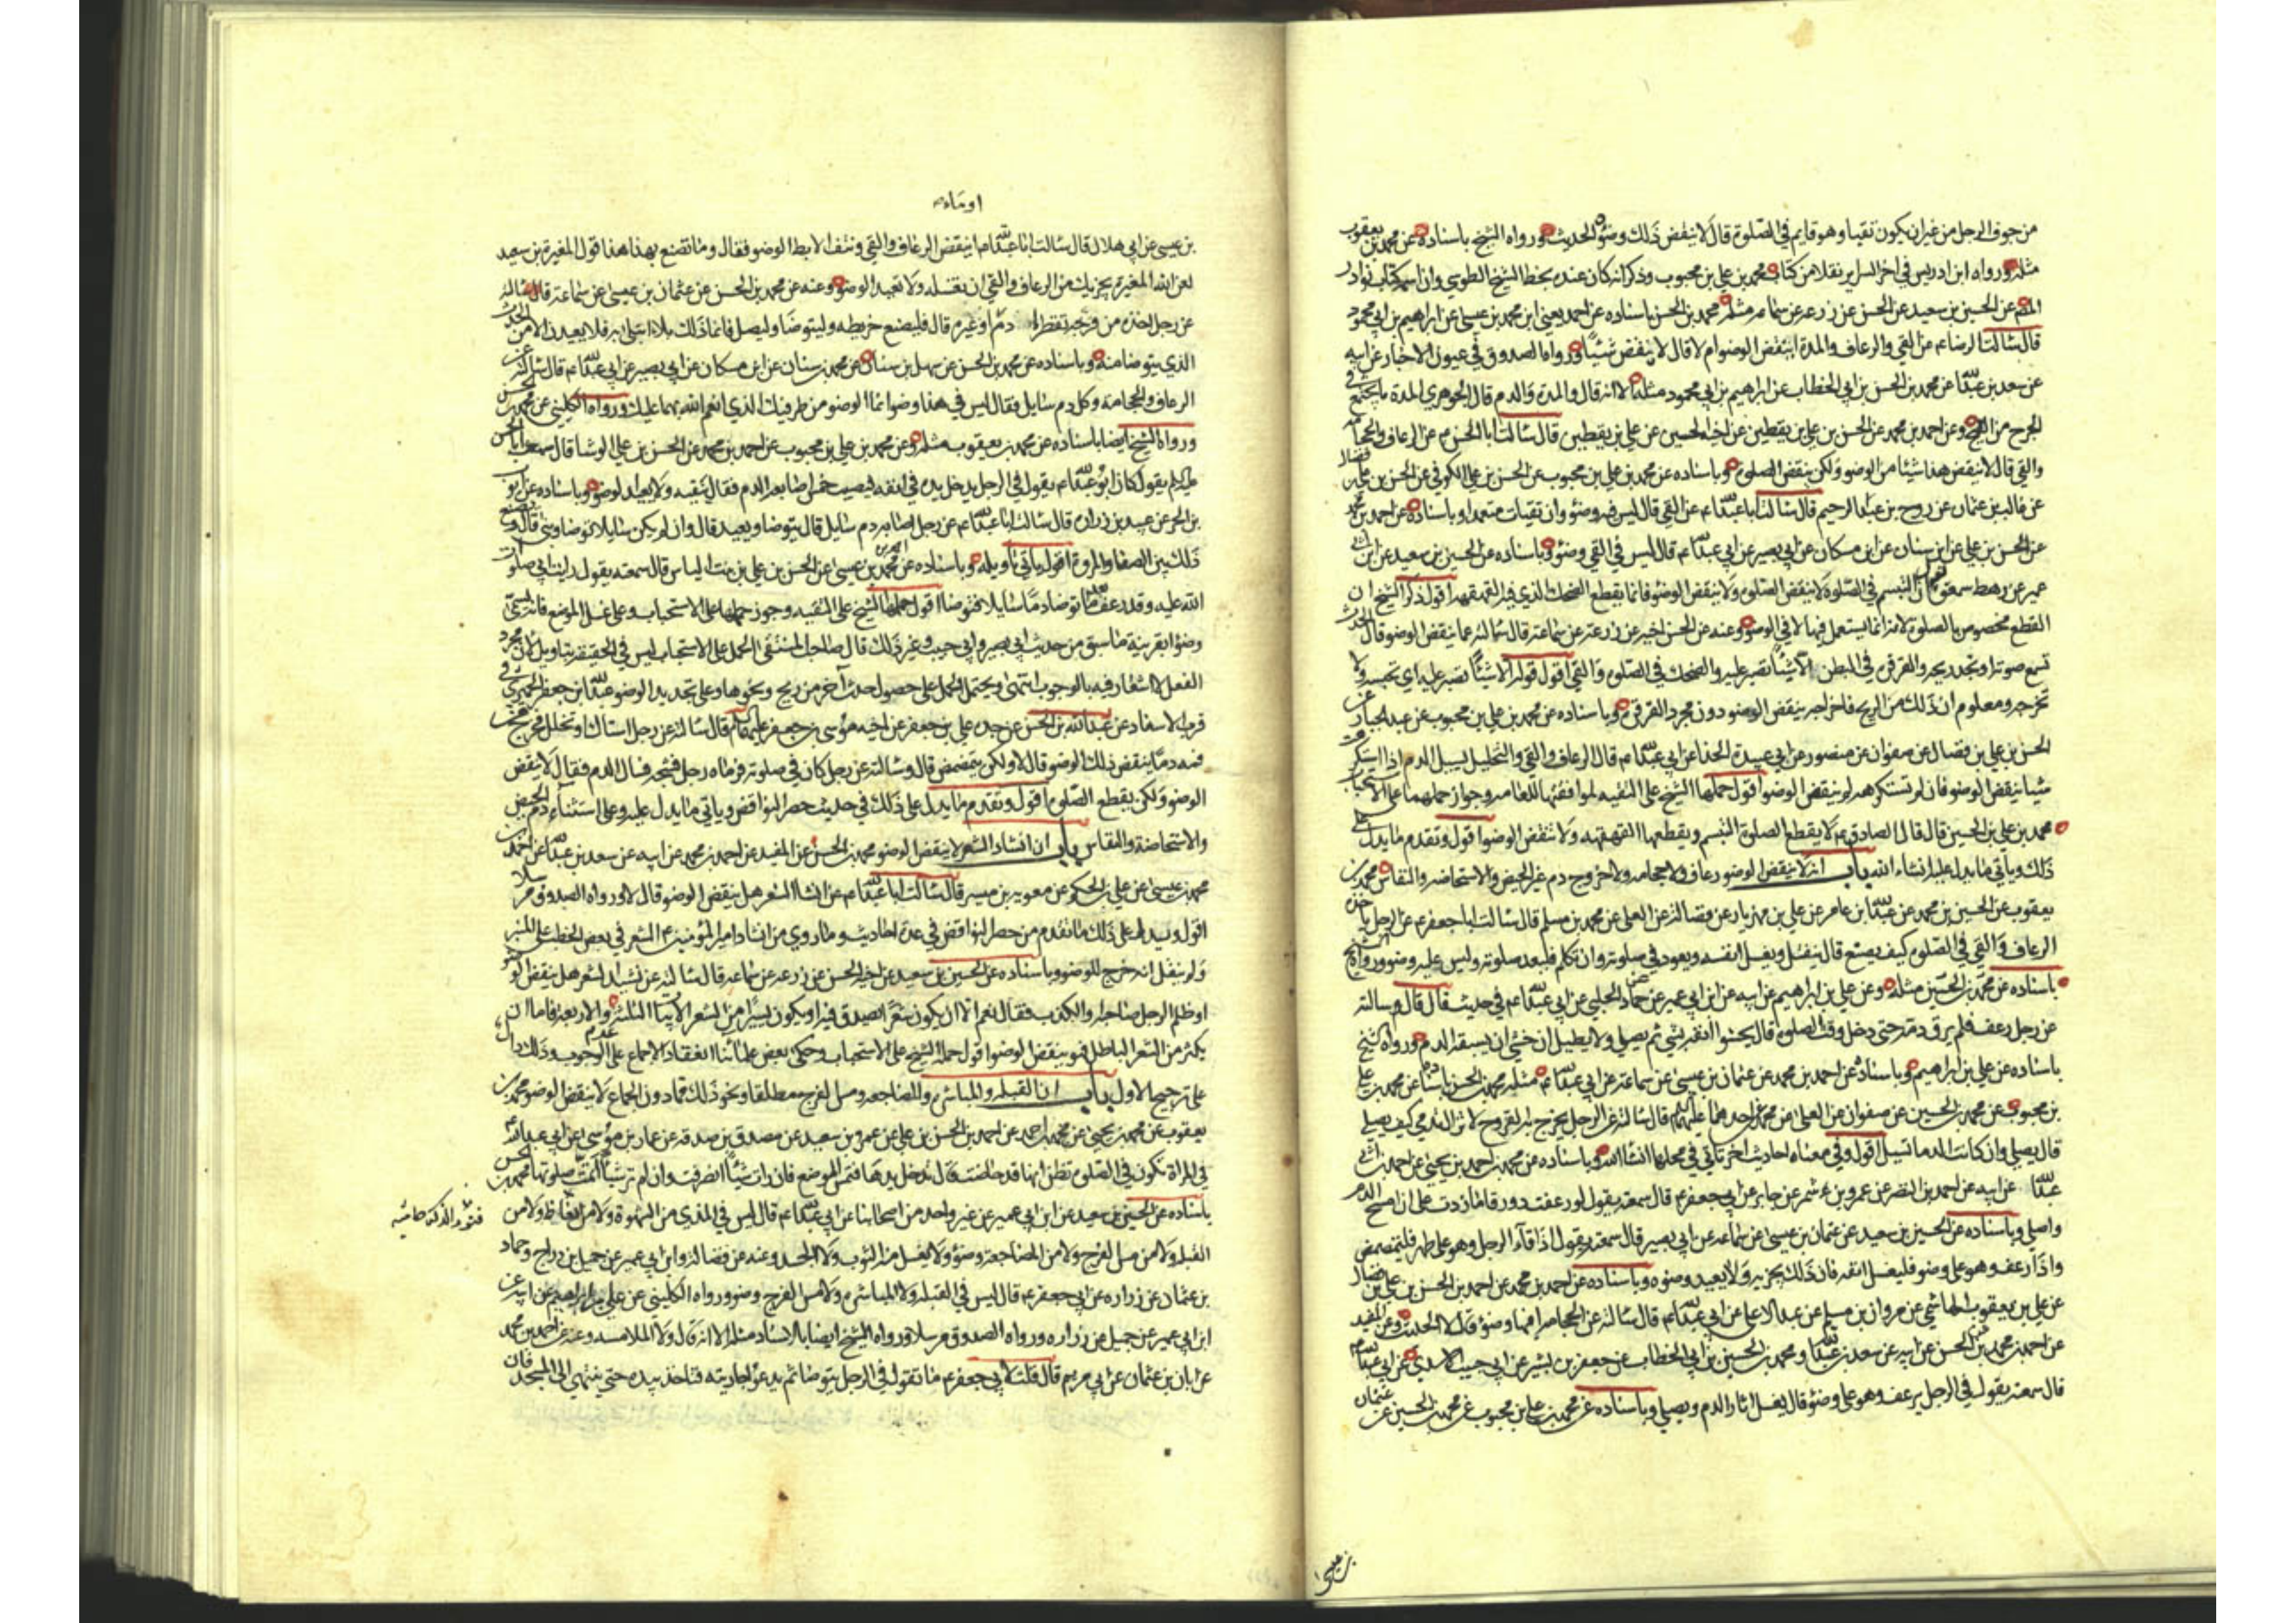 من جوف الرجل من غير ان يكون تقيا وهو قايم في الصلوة قال لا ينقض ذلك وضوءه الحديث ورواه الشيخ باسناده عن محمد بن يعقوب
مثله ورواه ابن ادريس في اخر السراير نقلا من كتاب محمد بن علي بن محبوب وذكر انه كان عنده بخط الشيخ الطوسي وان اسمه كتاب نوادر
المصنف عن الحسين بن سعيد عن الحسن عن زرعه عن سماعة مثله محمد بن الحسن باسناده عن احمد يعني ابن محمد بن عيسى عن ابراهيم بن ابي محمود
قال سالت الرضا ع عن القي والرعاف والمدة اينقض الوضو ام لا قال لا ينقض شيئا ورواه الصدوق في عيون الاخبار عن ابيه
عن سعد بن عبدالله عن محمد بن الحسين بن ابي الخطاب عن ابراهيم بن ابي محمود مثله الا انه قال والمدة والدم قال الجوهري المدة ما يجتمع في
الجرح من القيح وعن احمد بن محمد عن الحسن بن علي بن يقطين عن اخيه الحسين عن علي بن يقطين قال سالت ابا الحسن ع عن الرعاف والحجامة
والقي قال لا ينقض هذا شيئا من الوضو ولكن ينقض الصلوة وباسناده عن محمد بن علي بن محبوب عن الحسن بن علي الكوفي عن الحسن بن علي بن فضال
عن غالب بن عثمان عن روح بن عبد الرحيم قال سالت ابا عبدالله ع عن القي قال ليس فيه وضو وان تقيات متعمدا وباسناده عن احمد بن محمد
عن الحسن بن علي عن ابن سنان عن ابن مسكان عن ابي بصير عن ابي عبدالله ع قال ليس في القي وضو وباسناده عن الحسين بن سعيد عن ابن ابي
عمير عن رهط سمعوه يقول ان التبسم في الصلوة لا ينقض الصلوة ولا ينقض الوضو انما يقطع الضحك الذي فيه القهقهة اقول ذكر الشيخ ان
القطع مخصوص بالصلوة لانه انما يستعمل فيها لا في الوضو وعنه عن الحسن اخيه عن زرعة عن سماعة قال سالته عما ينقض الوضو قال الحدث
تسمع صوته او تجد ريحه والقرقرة في البطن الا شيئا تصبر عليه والضحك في الصلوة والقي اقول قوله الا شيئا تصبر عليه اي تحبسه ولا
تخرجه ومعلوم ان ذلك من الريح فاخراجه ينقض الوضو دون مجرد القرقرة وباسناده عن محمد بن علي بن محبوب عن عبد الجبار عن
الحسن بن علي بن فضال عن صفوان عن منصور عن ابي عبيدة الحذا عن ابي عبدالله ع قال الرعاف والقي والتخليل يسيل الدم اذا استكرهت
شيا ينقض الوضو فان لم تستكرهه لم ينقض الوضو اقول حملها الشيخ على التقيه لموافقتها للعامه وجواز حملهما على الاستحباب
محمد بن علي بن الحسين قال قال الصادق ع لا يقطع الصلوة التبسم ويقطعها القهقهة ولا تنقض الوضو اقول وتقدم ما يدل على
ذلك وياتي ما يدل عليه انشاء الله باب انه لا ينقض الوضو رعاف ولا حجامه ولا خروج دم غير الحيض والاستحاضه والنفاس محمد بن
يعقوب عن الحسين بن محمد عن عبدالله بن عامر عن علي بن مهزيار عن فضالة عن العلا عن محمد بن مسلم قال سالت ابا جعفر ع عن الرجل ياخذه
الرعاف والقي في الصلوة كيف يصنع قال ينفتل ويغسل انفه ويعود في صلوته وان تكلم فليعد صلوته وليس عليه وضو ورواه الشيخ
باسناده عن محمد بن الحسين مثله وعن علي بن ابراهيم عن ابيه عن ابن ابي عمير عن حماد عن الحلبي عن ابي عبدالله ع في حديث قال قال وسالته
عن رجل رعف فلم يرق دمه حتى دخل وقت الصلوة قال يحشوا انفه بشي ثم يصلي ولا يطيل ان خشي ان يسبقه الدم ورواه الشيخ
باسناده عن علي بن ابراهيم وباسناده عن احمد بن محمد عن عثمان بن عيسى عن سماعة عن ابي عبدالله ع مثله محمد بن الحسن باسناده عن محمد بن علي
بن محبوب عن محمد بن الحسين عن صفوان عن العلا عن محمد عن احدهما عليهما السلم قال سالته عن الرجل يخرج به القروح لا تزال تدمي كيف يصلي
قال يصلي وان كانت الدما تسيل اقول وفي معناه احاديث اخر تاتي في محلها انشاالله وباسناده عن محمد بن احمد بن يحيى عن احمد بن ابي
عبدالله عن ابيه عن احمد بن النضر عن عمرو بن شمر عن جابر عن ابي جعفر ع قال سمعته يقول لو رعفت دورقا ما زدت على ان امسح الدم
واصلي وباسناده عن الحسين بن سعيد عن عثمان بن عيسى عن سماعه عن ابي بصير قال سمعته يقول اذا قاء الرجل وهو على طهر فليتمضمض
واذا رعف وهو على وضو فليغسل انفه فان ذلك يجزيه ولا يعيد وضوه وباسناده عن احمد بن محمد عن احمد بن الحسن بن علي بن فضال
عن علي بن يعقوب الهاشمي عن مروان بن مسلم عن عبد الاعلى عن ابي عبدالله ع قال سالته عن الحجامه افيها وضو قال لا الحديث وعن المفيد
عن احمد بن محمد بن الحسن عن ابيه عن سعد بن عبدالله ومحمد بن الحسين بن ابي الخطاب عن جعفر بن بشير عن ابي حبيب الاسدي عن ابي عبدالله ع
قال سمعته يقول في الرجل يرعف وهو على وضو قال يغسل اثار الدم ويصلي وباسناده عن محمد بن علي بن محبوب عن محمد بن الحسين عن عثمان
بن عيسى
او ماء
بن عيسى عن ابي هلال قال سالت ابا عبدالله ع اينقض الرعاف والقي ونتف الابط الوضو فقال وما تصنع بهذا هذا قول المغيرة بن سعيد
لعن الله المغيرة يجزيك من الرعاف والقي ان تغسله ولا تعيد الوضو وعنه عن محمد بن الحسن عن عثمان بن عيسى عن سماعة قال سالته
عن رجل اخذه من فرجه تقطير اما دم او غيره قال فليصنع خريطه وليتوضا وليصل فانما ذلك بلاء ابتلي به فلا يعيدن الا من الحدث
الذي يتوضا منه وباسناده عن محمد بن الحسن عن سهل بن سنان عن محمد بن سنان عن ابن مسكان عن ابي بصير عن ابي عبدالله ع قال سالته عن
الرعاف والحجامة وكل دم سايل فقال ليس في هذا وضو انما الوضو من طرفيك الذي انعم الله بهما عليك ورواه الكليني عن محمد بن الحسن
ورواه الشيخ ايضا باسناده عن محمد بن يعقوب مثله وعن محمد بن علي بن محبوب عن احمد بن محمد عن الحسن بن علي الوشا قال سمعت ابا الحسن
عليه السلم يقول كان ابو عبدالله ع يقول في الرجل يدخل يده في انفه فيصيب خمس اصابعه الدم فقال ينقيه ولا يعيد الوضو وباسناده عن ايوب
بن الحر عن عبيد بن زراره قال سالت ابا عبدالله ع عن رجل اصابه دم سايل قال يتوضا ويعيد قال وان لم يكن سايلا توضا وبنى قال ويصنع
ذلك بين الصفا والمروة اقول ياتي تاويله وباسناده عن احمد بن محمد بن عيسى عن الحسن بن علي بن بنت الياس قال سمعته يقول رايت ابي صلوات
الله عليه وقد رعف بعد ما توضا دما سايلا فتوضا اقول حملها الشيخ على التقيه وجوز حملها على الاستحباب وعلى غسل الموضع فانه يسمى
وضوا بقرينة ما سبق من حديث ابي بصير وابي حبيب وغير ذلك قال صاحب المنتقى الحمل على الاستحباب ليس في الحقيقة بتاويل لان مجرد
الفعل لا اشعار فيه بالوجوب انتهى ويحتمل الحمل على حصول حدث آخر من ريح ونحوها وعلى تجديد الوضو عبدالله بن جعفر الحميري في
قرب الاسناد عن عبدالله بن الحسن عن جده علي بن جعفر عن اخيه موسى بن جعفر عليهما السلم قال سالته عن رجل استاك او تخلل فخرج من
فمه دم اينقض ذلك الوضو قال لا ولكن يتمضمض قال وسالته عن رجل كان في صلوته فرماه رجل فشجه فسال الدم فقال لا ينقض
الوضو ولكن يقطع الصلوة اقول وتقدم ما يدل على ذلك في حديث حصر النواقض وياتي ما يدل عليه وعلى استثناء دم الحيض
والاستحاضة والنفاس باب ان انشاد الشعر لا ينقض الوضو محمد بن الحسن عن المفيد عن احمد بن محمد عن ابيه عن سعد بن عبدالله عن احمد بن
محمد بن عيسى عن علي بن الحكم عن معويه بن ميسره قال سالت ابا عبدالله ع عن انشاد الشعر هل ينقض الوضو قال لا ورواه الصدوق مرسلا
اقول ويدل على ذلك ما تقدم من حصر النواقض في عدة احاديث وما روي من انشاد امير المؤمنين ع الشعر في بعض الخطب على المنبر
ولم ينقل انه خرج للوضو وباسناده عن الحسين بن سعيد عن اخيه الحسن عن زرعه عن سماعه قال سالته عن نشيد الشعر هل ينقض الوضو
او ظلم الرجل صاحبه او الكذب فقال نعم الا ان يكون شعرا يصدق فيه او يكون يسيرا من الشعر الابيات الثلثة والاربعة فاما ان
يكثر من الشعر الباطل فهو ينقض الوضو اقول حمله الشيخ على الاستحباب وحكى بعض علمائنا انعقاد الاجماع على عدم الوجوب وذلك دال
على ترجيح الاول باب ان القبله والمباشرة والمضاجعه ومس الفرج مطلقا ونحو ذلك مما دون الجماع لا ينقض الوضو محمد بن
يعقوب عن محمد بن يحيى عن محمد بن احمد عن احمد بن الحسن بن علي عن عمرو بن سعيد عن مصدق بن صدقه عن عمار بن موسى عن ابي عبدالله ع
في المراة تكون في الصلوة تظن انها قد حاضت قال تدخل يدها فتمس الموضع فان رات شيئا انصرفت وان لم تر شيئا اتمت صلوتها محمد بن الحسن
باسناده عن الحسين بن سعيد عن ابن ابي عمير عن غير واحد من اصحابنا عن ابي عبدالله ع قال ليس في المذي من الشهوة ولا من الانعاظ ولا من
القبله ولا من مس الفرج ولا من المضاجعة وضو ولا يغسل منه الثوب ولا الجسد وعنه عن فضالة وابن ابي عمير عن جميل بن دراج وحماد
بن عثمان عن زراره عن ابي جعفر ع قال ليس في القبله ولا المباشره ولا مس الفرج وضو ورواه الكليني عن علي بن ابراهيم عن ابيه عن
ابن ابي عمير عن جميل عن زراره ورواه الصدوق مرسلا ورواه الشيخ ايضا بالاسناد مثله الا انه قال ولا الملامسه وعنه عن احمد بن محمد
عن ابان بن عثمان عن ابي مريم قال قلت لابي جعفر ع ما تقول في الرجل يتوضا ثم يدعو جاريته فتاخذ بيده حتى ينتهي الى المسجد فان